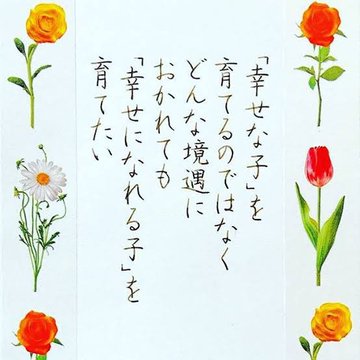 「幸せな子」を
育てるのではなく
どんな境遇に
おかれても
「幸せになれる子」を
育てたい